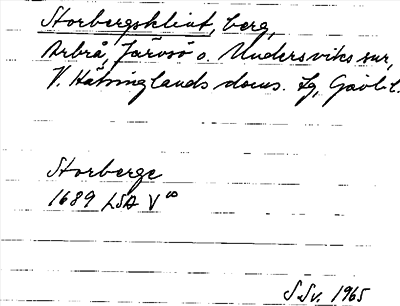 Storbergsklint, berg,
Arbrå, Järvsö o. Undersviks snr,
V. Hälsinglands doms. fg, Gävl. l.
Storberge
1689 LSA V
S.Sv. 1965